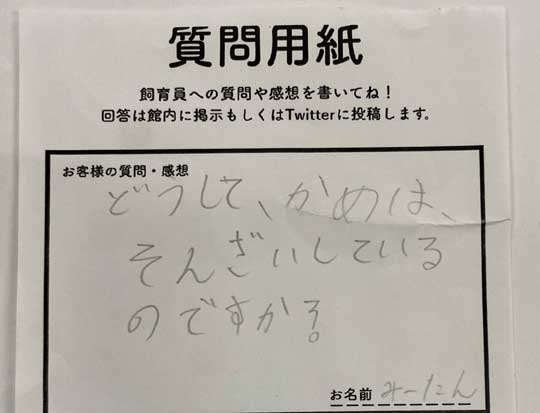 質問用紙
飼育員への質問や感想を書いてね！
回答は館内に掲示もしくはTwitterに投稿します。
お客様の質問・感想
どうして、かめは、
そんざいしている
のですか?
お名前 みーたん